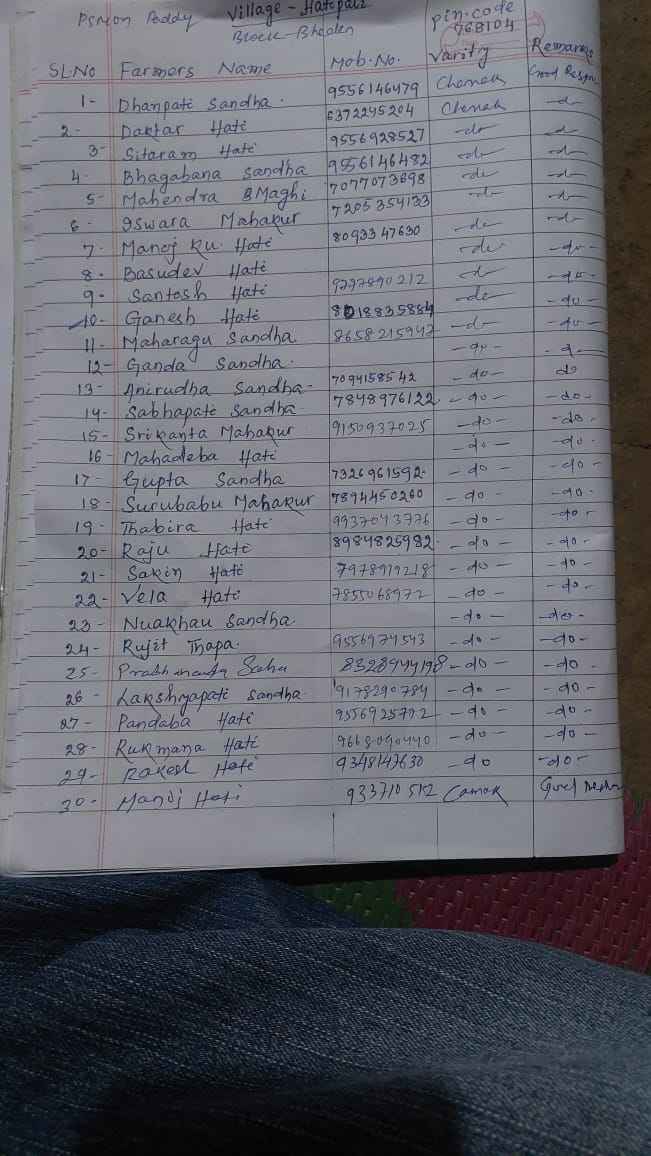 Paddy Village - Hatipali Pin.code
Block - Bheden 768104
SL.No Farmers Name Mob.No. Varity Remarks
1- Dhanpati Sandha. 9556146479 Chemak Good
2- Daktar Hati 6372245204 Chemak -do-
3- Sitaram Hati 9556928527 -do- -do-
4- Bhagabana Sandha 9556146482 -do- -do-
5- Mahendra BMaghi 7077073698 -do- -do-
6- Iswara Mahakur 7205354133 -do- -do-
7- Manoj Ku. Hati 8093347630 -do- -do-
8- Basudev Hati -do- -do-
9- Santosh Hati -do- -do-
10- Ganesh Hati 8018835884 -do- -do-
11- Maharagu Sandha 8658215947 -do- -do-
12- Ganda Sandha. -do- -do-
13- Anirudha Sandha- 7094158542 -do- do
14- Sabhapati Sandha 7848976122 -do- -do-
15- Srikanta Mahakur 9150937025 -do- -do-
16- Mahadeba Hati -do- -do-
17- Gupta Sandha 7326961592. -do- -do-
18- Surubabu Mahakur 7894450260 -do- -do-
19- Thabira Hati 9937043776 -do- -do-
20- Raju Hati 8984825982. -do- -do-
21- Sakin Hati 7978919218 -do- -do-
22- Vela Hati 7855068972 -do- -do-
23- Nuakhau Sandha -do- -do-
24- Rujit Thapa. 9556974543 -do- -do-
25- Sahu 8328944198 -do- -do-
26- Lakshyapati Sandha 9178290784 -do- -do-
27- Pandaba Hati 9556925792 -do- -do-
28- Rukmana Hati 9668090440 -do- -do-
29- Rakesh Hati 9348147630 -do -do-
30- Manoj Hati 933710 5152 Camak Good